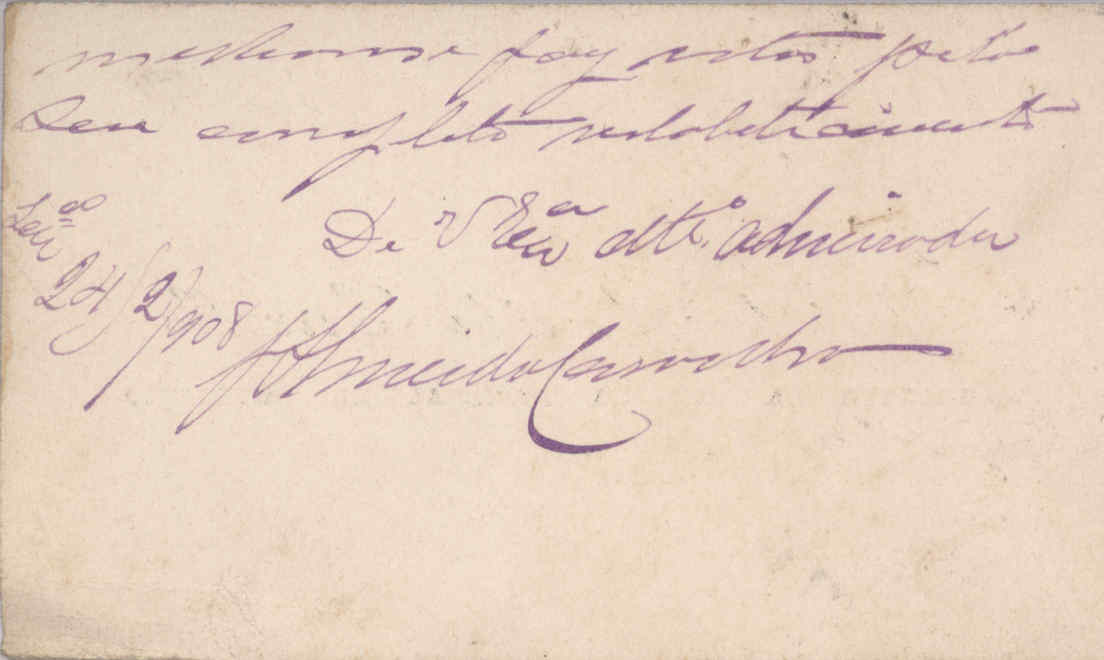 melhoras e faz votos pelo
seu completo restabelecimento
De V Exª attº admirador
24/2/908
J Almeida Carvalho